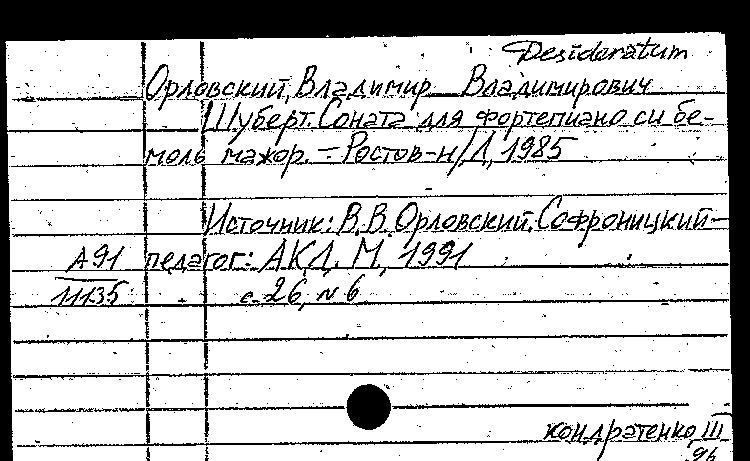 Desideratum
Орловский, Владимир Владимирович
Шуберт. Соната для фортепиано си бе-
моль мажор. – Ростов-н/Д, 1985
Источник: В.В. Орловский. Софроницкий-
А91 педагог: АКД. М., 1991
11135 с. 26, № 6
кондратенко III
96